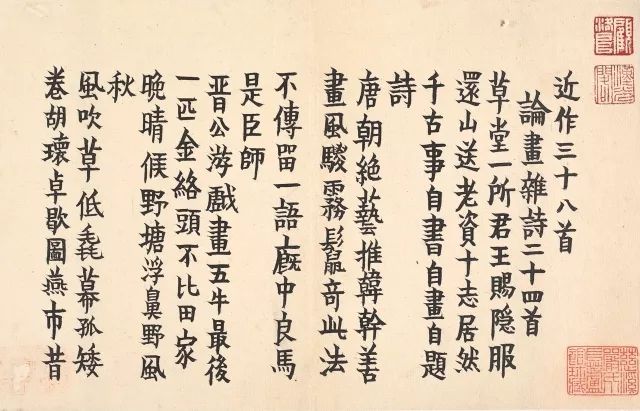 近作三十八首
論畫雜詩二十四首
草堂一所君王賜隐服
還山送老資十志居然
千古事自書自畫自題
詩
唐朝絶藝推韓幹善
畫風騣霧鬣奇此法
不傳留一語上廐中良馬
是臣師
晋公游戲畫五牛最後
一匹金絡頭不比田家
晚晴候野塘浮鼻野風
秋
風吹草低毳幕孤矮
卷胡瓌卓歇圖燕市昔